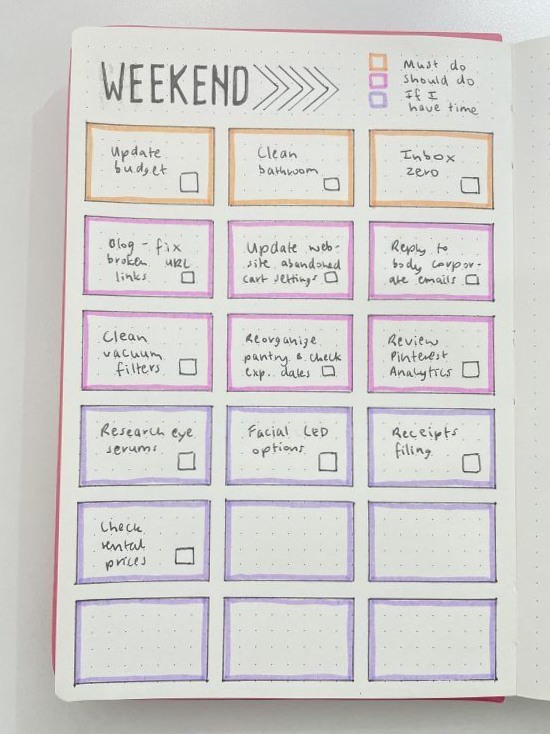 WEEKEND
Must do
Should do
If I
have time
Update
budget
Clean
bathroom
Inbox
zero
Blog - fix
broken URL
links
Update web-
site abandoned
cart settings
Reply to
body corpor-
ate emails
Clean
vacuum
filters
Reorganize
pantry & check
exp. dates
Review
Pinterest
Analytics
Research eye
serums
Facial LED
options
Receipts
filing
Check
rental
prices